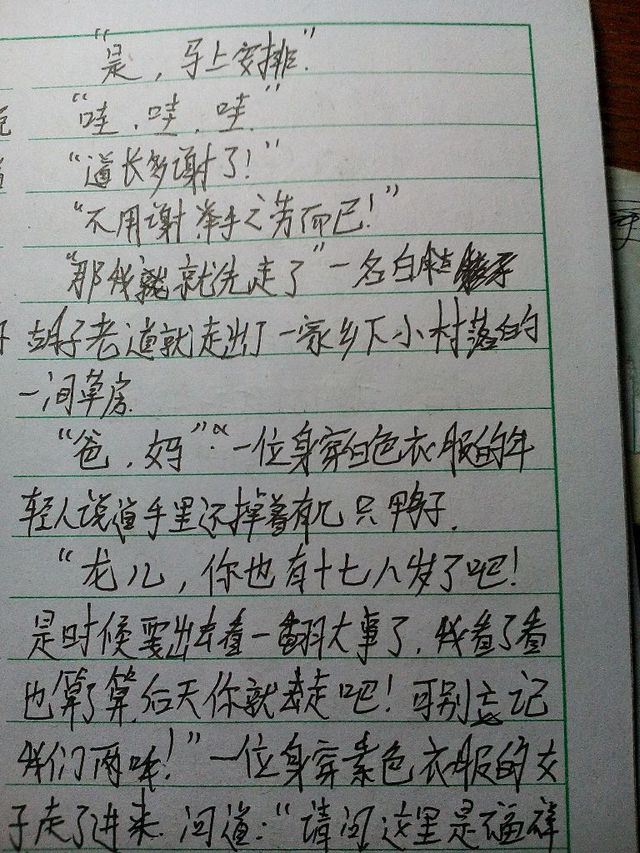 “是，马上安排”.
“哇，哇，哇”
“道长多谢了！”
“不用谢举手之劳而已！”
“那我就先走了”一名白
胡子老道就走出了一家乡下小村落的
一间草房.
“爸，妈”. 一位身穿白色衣服的年
轻人说道手里还撑着有几只鸭子.
“龙儿，你也有十七八岁了吧！
是时候要出去看一翻大事了，我看了看
也算了算，后天你就走吧！可别忘记
我们两咪！”一位身穿素色衣服的女
子走了进来. 问道：“请问这里是福祥